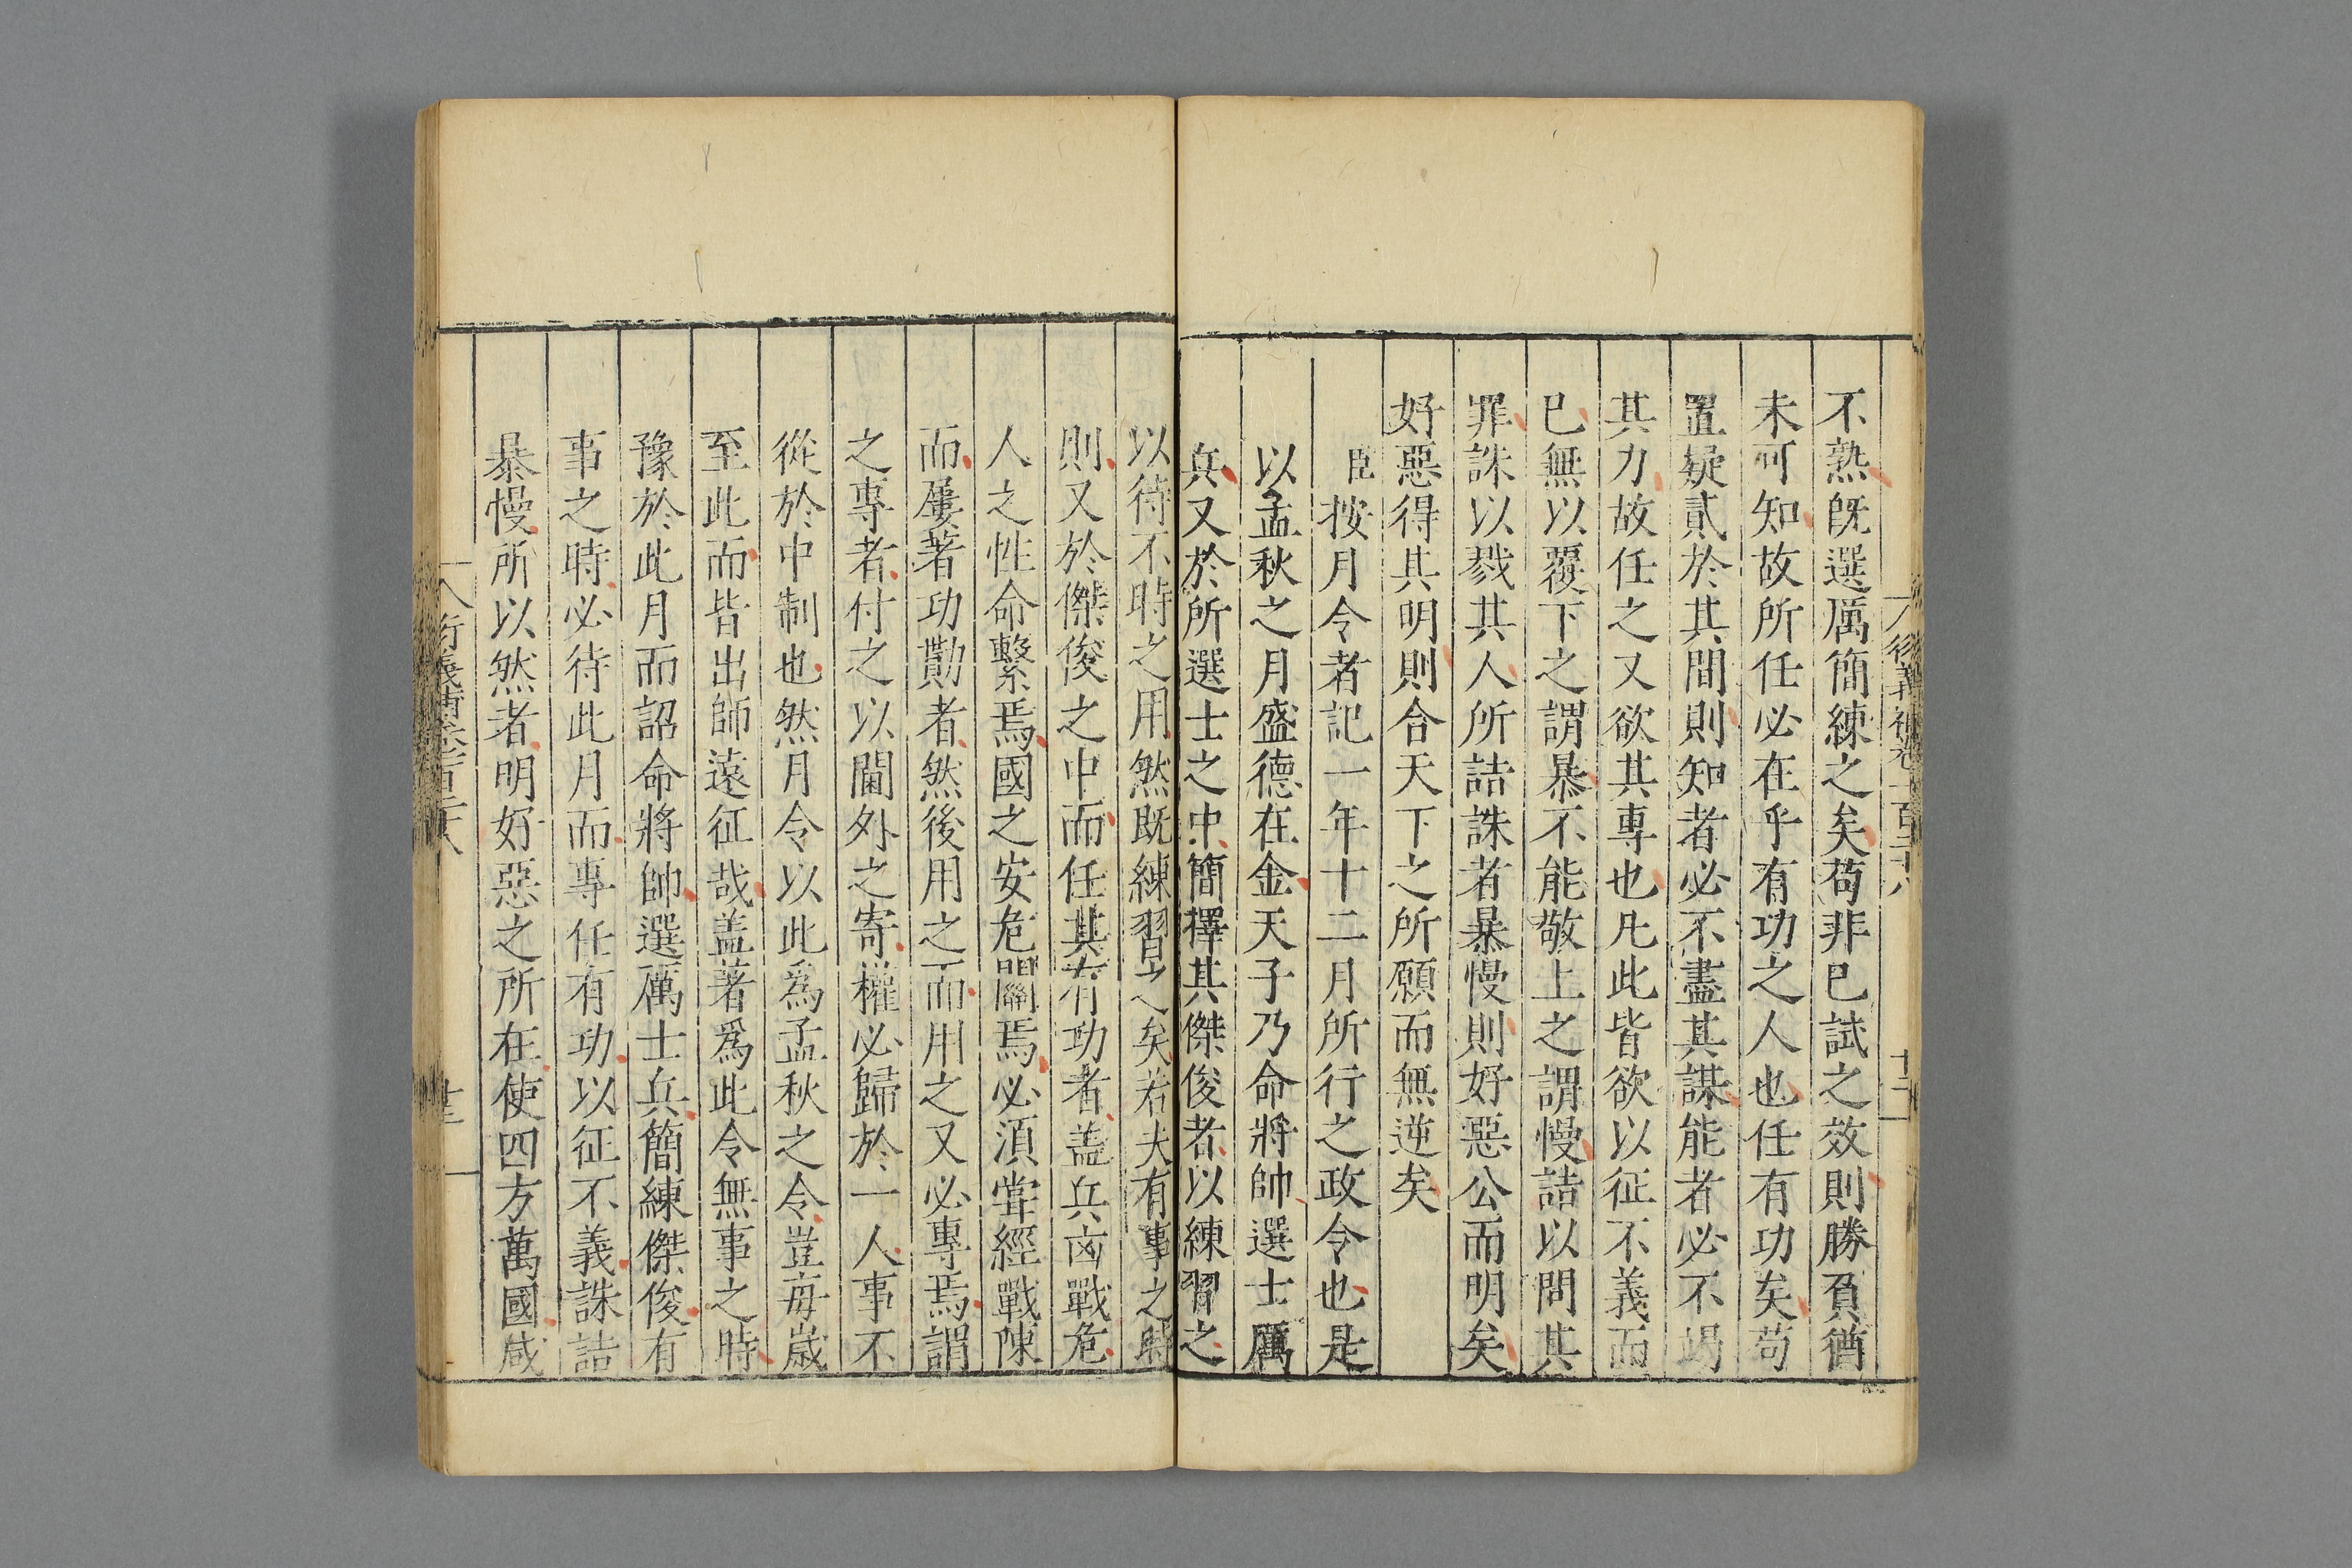 不熟旣選厲簡練之矣苟非已試之效則勝負猶
未可知故所任必在乎有功之人也任有功矣苟
置疑貳於其間則知者必不盡其謀能者必不竭
其力故任之又欲其專也凡此皆欲以征不義而
已無以覆下之謂暴不能敬上之謂慢詰以問其
罪誅以戮其人所詰誅者暴慢則好惡公而明矣
好惡得其明則合天下之所願而無逆矣
臣按月令者記一年十二月所行之政令也是
以孟秋之月盛德在金天子乃命將帥選士厲
兵又於所選士之中簡擇其傑俊者以練習之
以待不時之用然既練習之矣若夫有事之時
則又於傑俊之中而任其有功者蓋兵凶戰危
人之性命繫焉國之安危關焉必須嘗經戰陳
而屢著功勩者然後用之而用之又必專焉謂
之專者付之以閫外之寄權必歸於一人事不
從於中制也然月令以此爲孟秋之令豈毎嵗
至此而皆出師遠征哉盖著爲此令無事之時
豫於此月而詔命將帥選厲士兵簡練傑俊有
事之時必待此月而專任有功以征不義誅詰
暴慢所以然者明好惡之所在使四方萬國咸